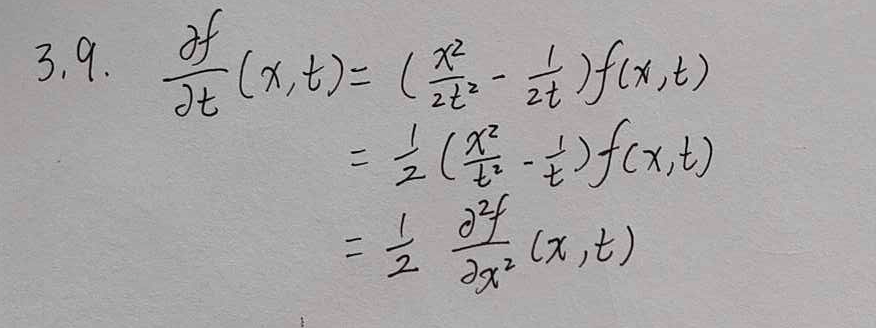 3.9. ∂f/∂t (x,t) = (x²/2t² - 1/2t) f(x,t)
= 1/2 (x²/t² - 1/t) f(x,t)
= 1/2 ∂²f/∂x² (x,t)